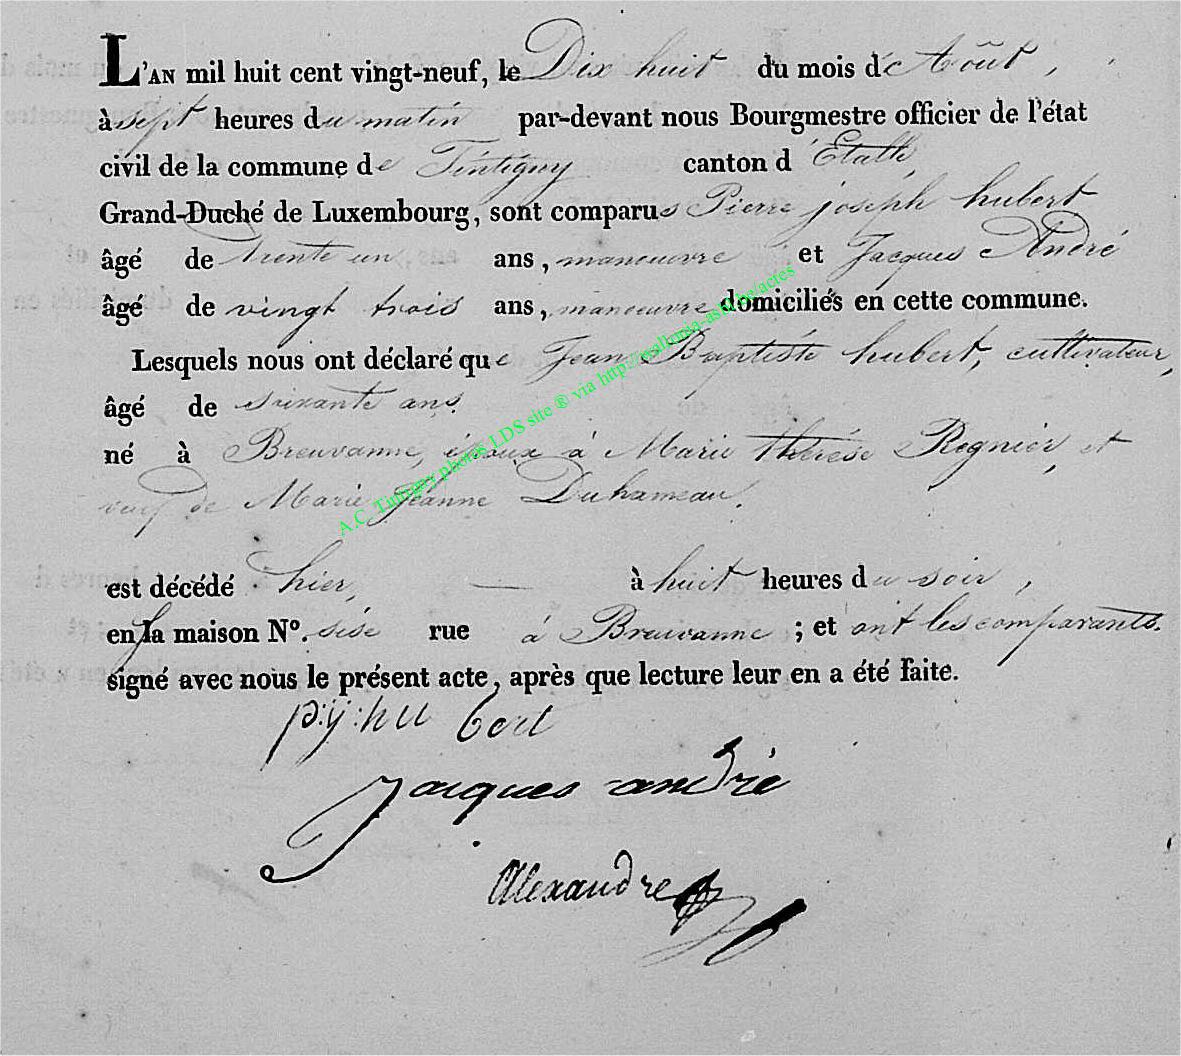 L'AN mil huit cent vingt-neuf, le Dix huit du mois d'Août,
à sept heures du matin par-devant nous Bourgmestre officier de l'état
civil de la commune de Tintigny canton d'Etalle,
Grand-Duché de Luxembourg, sont comparus Pierre joseph hubert
âgé de trente un ans, manoeuvre et Jacques André
âgé de vingt trois ans, manoeuvre domiciliés en cette commune.
Lesquels nous ont déclaré que Jean Baptiste hubert, cultivateur,
âgé de soixante ans.
né à Breuvanne, époux à Marie thérése Regnier, et
veuf de Marie Jeanne Duhameau.
est décédé hier, — à huit heures du soir,
en sa maison N°. sise rue à Breuvanne ; et ont les comparants.
signé avec nous le présent acte, après que lecture leur en a été faite.
p:ÿ:hu bert
jacques andrie
Alexandre
A.C. Tintigny photos LDS site ® via http://mallonia-asbl.be/actes